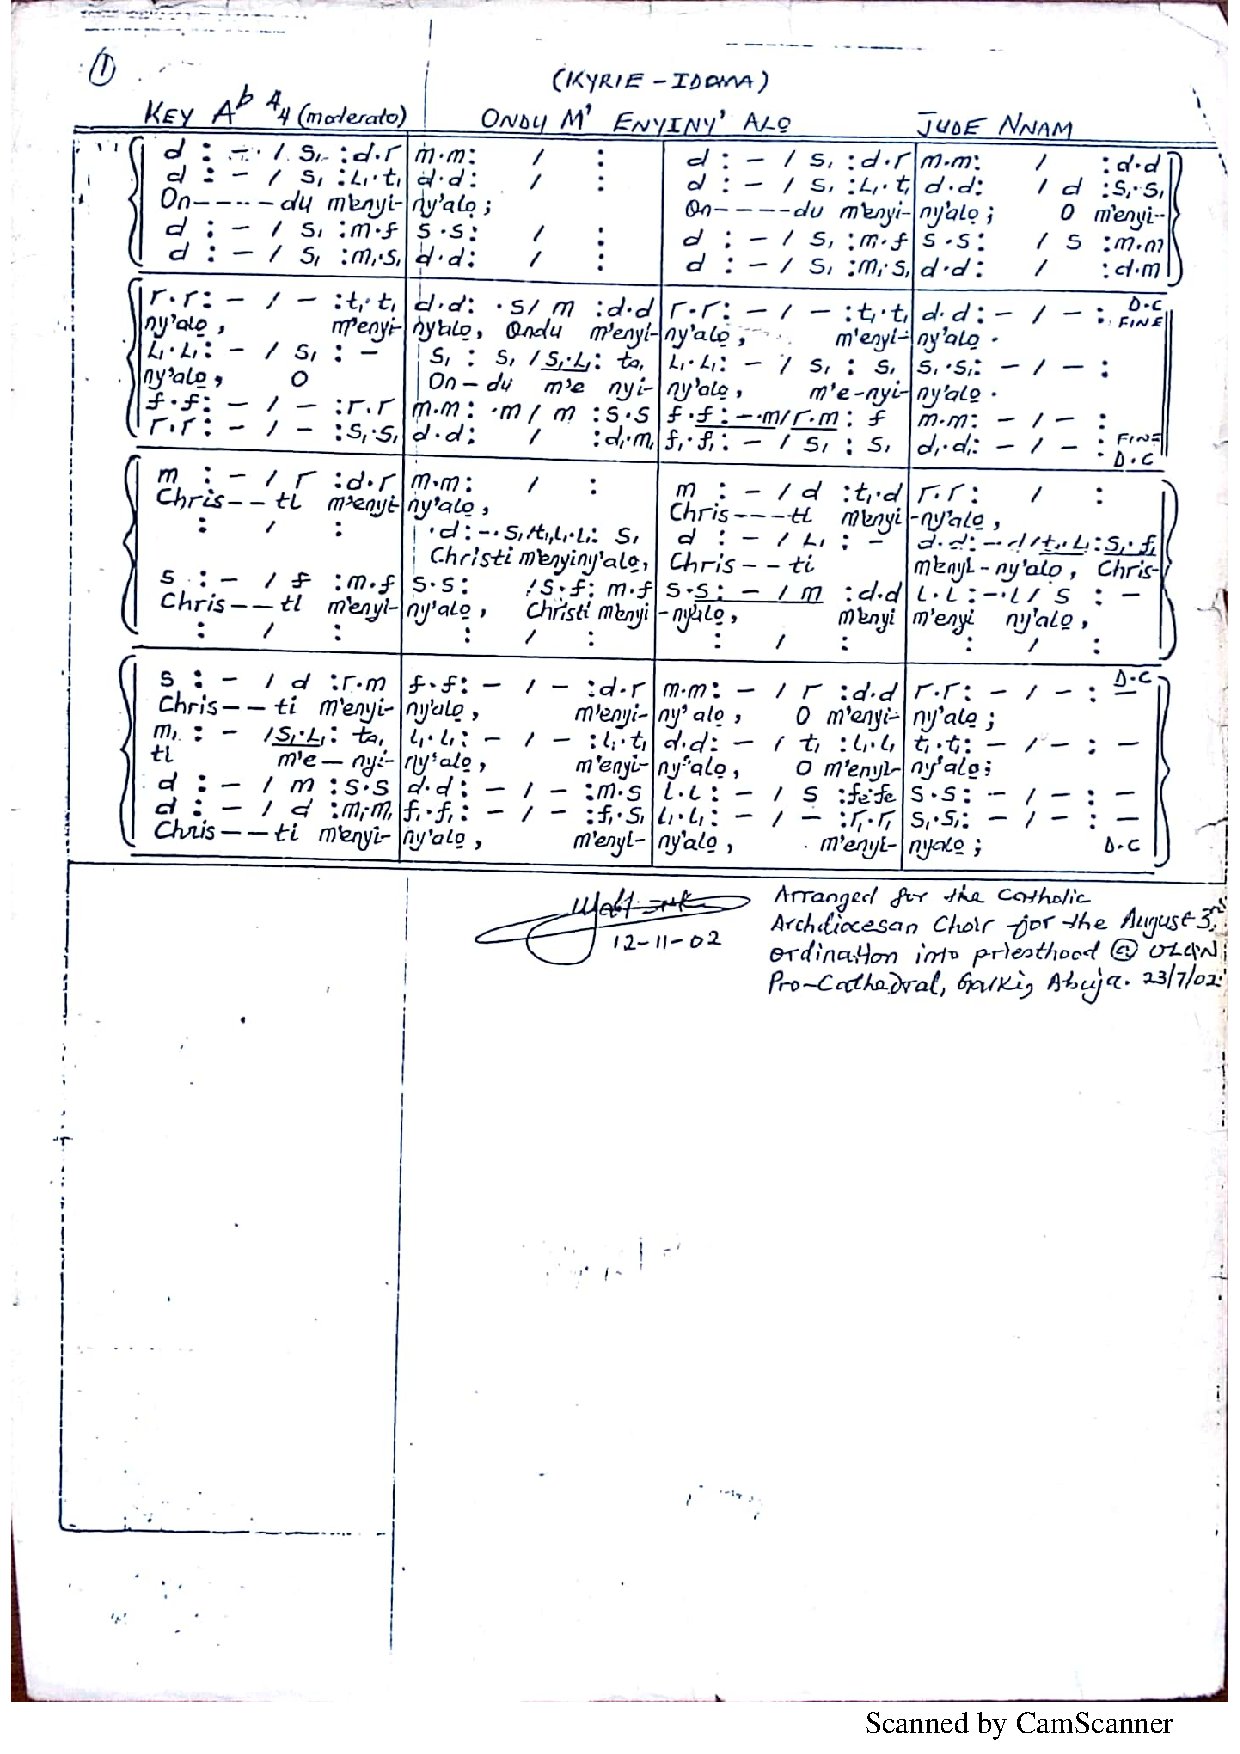 1
(KYRIE - IDOMA)
KEY A♭ 4/4 (moderato) ONDU M' ENYINY' ALỌ JUDE NNAM
d : - · / s₁ : d·r | m·m: / : | d : - / s₁ : d·r | m·m: / : d·d
d : - / s₁ : l₁·t₁ | d·d: / : | d : - / s₁ : l₁·t₁ | d·d: / d : s₁·s₁
On-----du m'enyi- | ny'alọ; | On----du m'enyi- | ny'alọ; O m'enyi-
d : - / s₁ : m·f | s·s: / : | d : - / s₁ : m·f | s·s: / s : m·m
d : - / s₁ : m₁·s₁ | d·d: / : | d : - / s₁ : m₁·s₁ | d·d: / : d·m
r·r: - / - : t₁·t₁ | d·d: ·s / m : d·d | r·r: - / - : t₁·t₁ | d·d: - / - : D.C FINE
ny'alọ, m'enyi- | ny'alọ, Ondu m'enyi- | ny'alọ, m'enyi- | ny'alọ.
l₁·l₁: - / s₁ : - | s₁ : s₁ / s₁·l₁: ta₁ | l₁·l₁: - / s₁ : s₁ | s₁·s₁: - / - :
ny'alọ, O | On-du m'e nyi- | ny'alọ, m'e-nyi- | ny'alọ.
f·f: - / - : r·r | m·m: ·m / m : s·s | f·f: -·m / r·m : f | m·m: - / - :
r·r: - / - : s₁·s₁ | d·d: / : d₁·m₁ | f₁·f₁: - / s₁ : s₁ | d₁·d₁: - / - : FINE D.C
m : - / r : d·r | m·m: / : | m : - / d : t₁·d | r·r: / :
Chris--ti m'enyi- | ny'alọ, | Chris---ti m'enyi | -ny'alọ,
: / : | ·d: -·s₁/t₁,l₁·l₁: s₁ | d : - / l₁ : - | d·d: -·d / t₁·l₁: s₁·f₁
Christi m'enyiny'alọ, | Chris--ti | m'enyi-ny'alọ, Chris-
s : - / f : m·f | s·s: / s·f: m·f | s·s: - / m : d·d | l·l: -·l / s : -
Chris--ti m'enyi- | ny'alọ, Christi m'enyi | -ny'alọ, m'enyi | m'enyi ny'alọ,
: / : | : / : | : / : | : / :
s : - / d : r·m | f·f: - / - : d·r | m·m: - / r : d·d | r·r: - / - : - D.C
Chris--ti m'enyi- | ny'alọ, m'enyi- | ny'alọ, O m'enyi- | ny'alọ;
m₁ : - / s₁·l₁: ta₁ | l₁·l₁: - / - : l₁·t₁ | d·d: - / t₁ : l₁·l₁ | t₁·t₁: - / - : -
ti m'e-nyi- | ny'alọ, m'enyi- | ny'alọ, O m'enyi- | ny'alọ;
d : - / m : s·s | d·d: - / - : m·s | l·l: - / s : fe·fe | s·s: - / - : -
d : - / d : m₁·m₁ | f₁·f₁: - / - : f₁·s₁ | l₁·l₁: - / - : r₁·r₁ | s₁·s₁: - / - : -
Chris--ti m'enyi- | ny'alọ, m'enyi- | ny'alọ, m'enyi- | ny'alọ; D.C
Arranged for the Catholic
Archdiocesan Choir for the August 3rd
12-11-02
ordination into priesthood @ OLQN
Pro-Cathedral, Garki, Abuja. 23/7/02.
Scanned by CamScanner